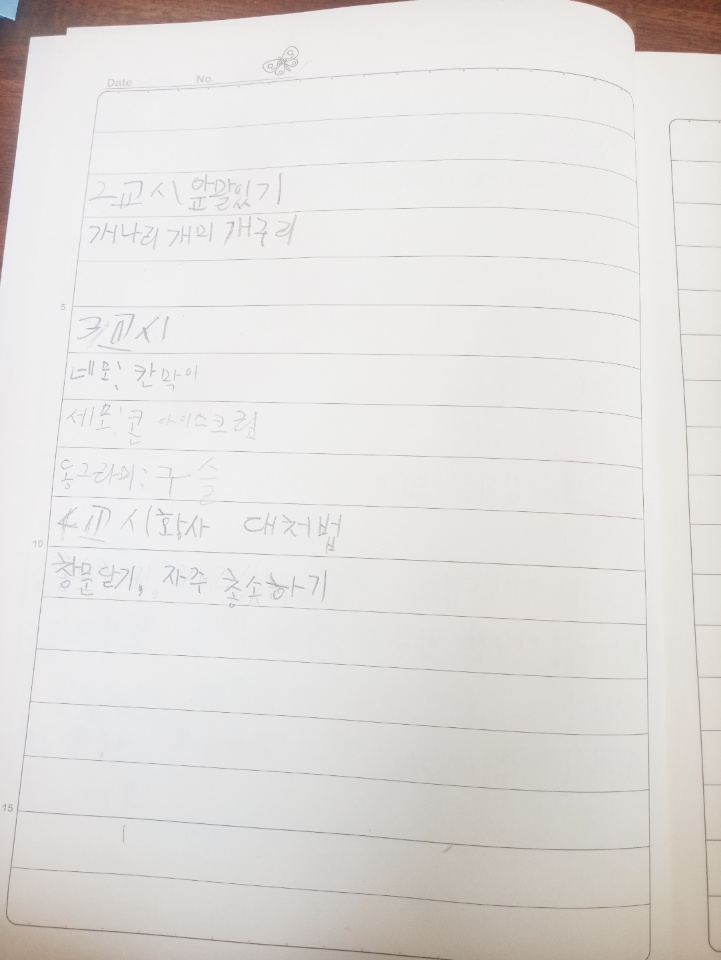 Date No.
2교시 앞말잇기
개나리 개미 개구리
5
3교시
네모: 칸막이
세모: 콘 아이스크림
동그라미: 구슬
4교시 황사 대처법
10
창문닫기, 자주 청소하기
15